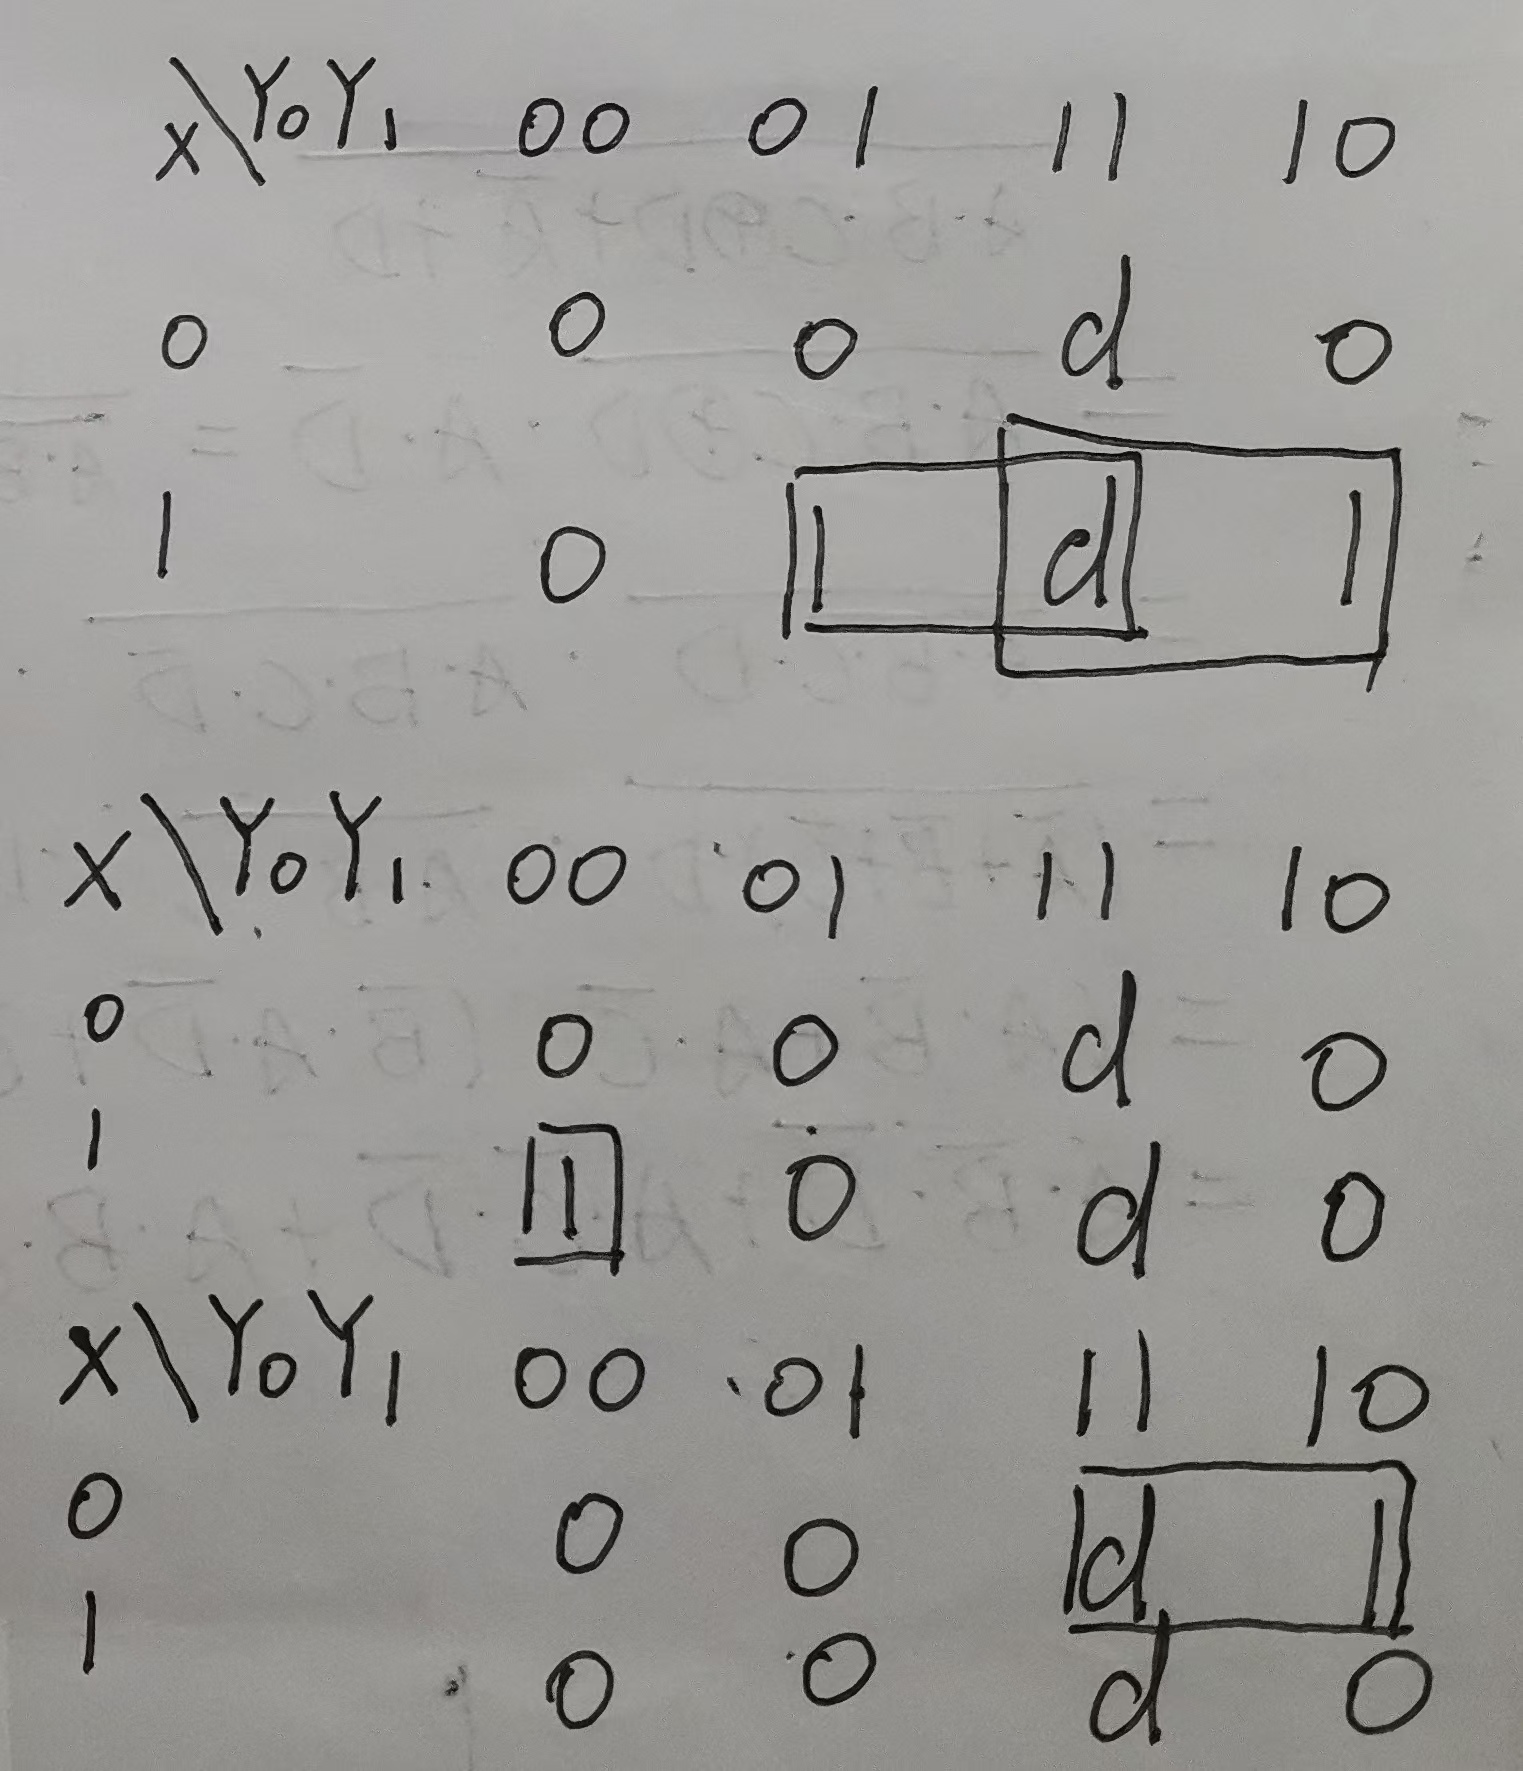 x\Y₀Y₁ 00 01 11 10
0 0 0 d 0
1 0 1 d 1
x\Y₀Y₁ 00 01 11 10
0 0 0 d 0
1 1 0 d 0
x\Y₀Y₁ 00 01 11 10
0 0 0 d 1
1 0 0 d 0